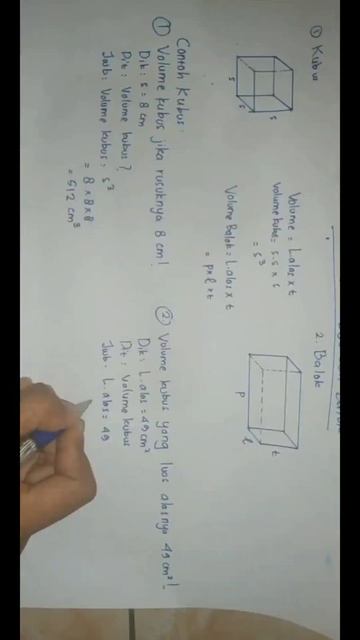 ① Kubus
s
s
s
Volume = L.alas x t
Volume kubus = s.s x s
= s³
2. Balok
P
l
t
Volume Balok = L.alas x t
= p x l x t
Contoh Kubus:
① Volume kubus jika rusuknya 8 cm!
Dik: s = 8 cm
Dit: Volume kubus?
Jwb: Volume kubus: s³
= 8 x 8 x 8
= 512 cm³
② Volume kubus yang luas alasnya 49 cm²!
Dik: L.alas = 49 cm²
Dit: Volume kubus
Jwb. L.alas = 49